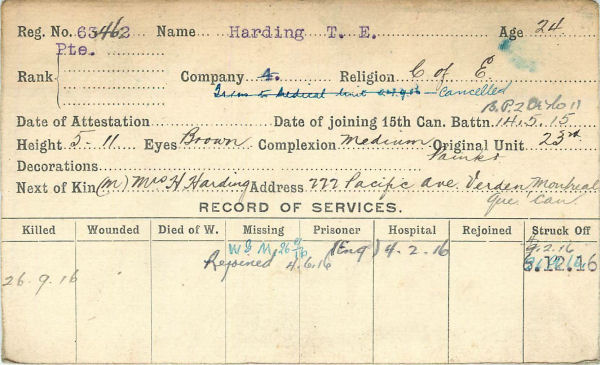 Reg. No. 63462 Name Harding T. E. Age 24
Pte.
Rank Company 4. Religion C of E.
Trans to Medical Unit Cancelled
B.P.2
Date of Attestation Date of joining 15th Can. Battn. 14.5.15
Height 5-11 Eyes Brown Complexion Medium Original Unit 23rd
Decorations
Next of Kin (M) Mrs H. Harding Address 777 Pacific Ave. Verdun, Montreal
Que. Can
RECORD OF SERVICES.
Killed Wounded Died of W. Missing Prisoner Hospital Rejoined Struck Off
W & M 26 9/16 (Eng) 4-2-16 9.2.16
Rejoined 4.6.16 8.12.16
26.9.16